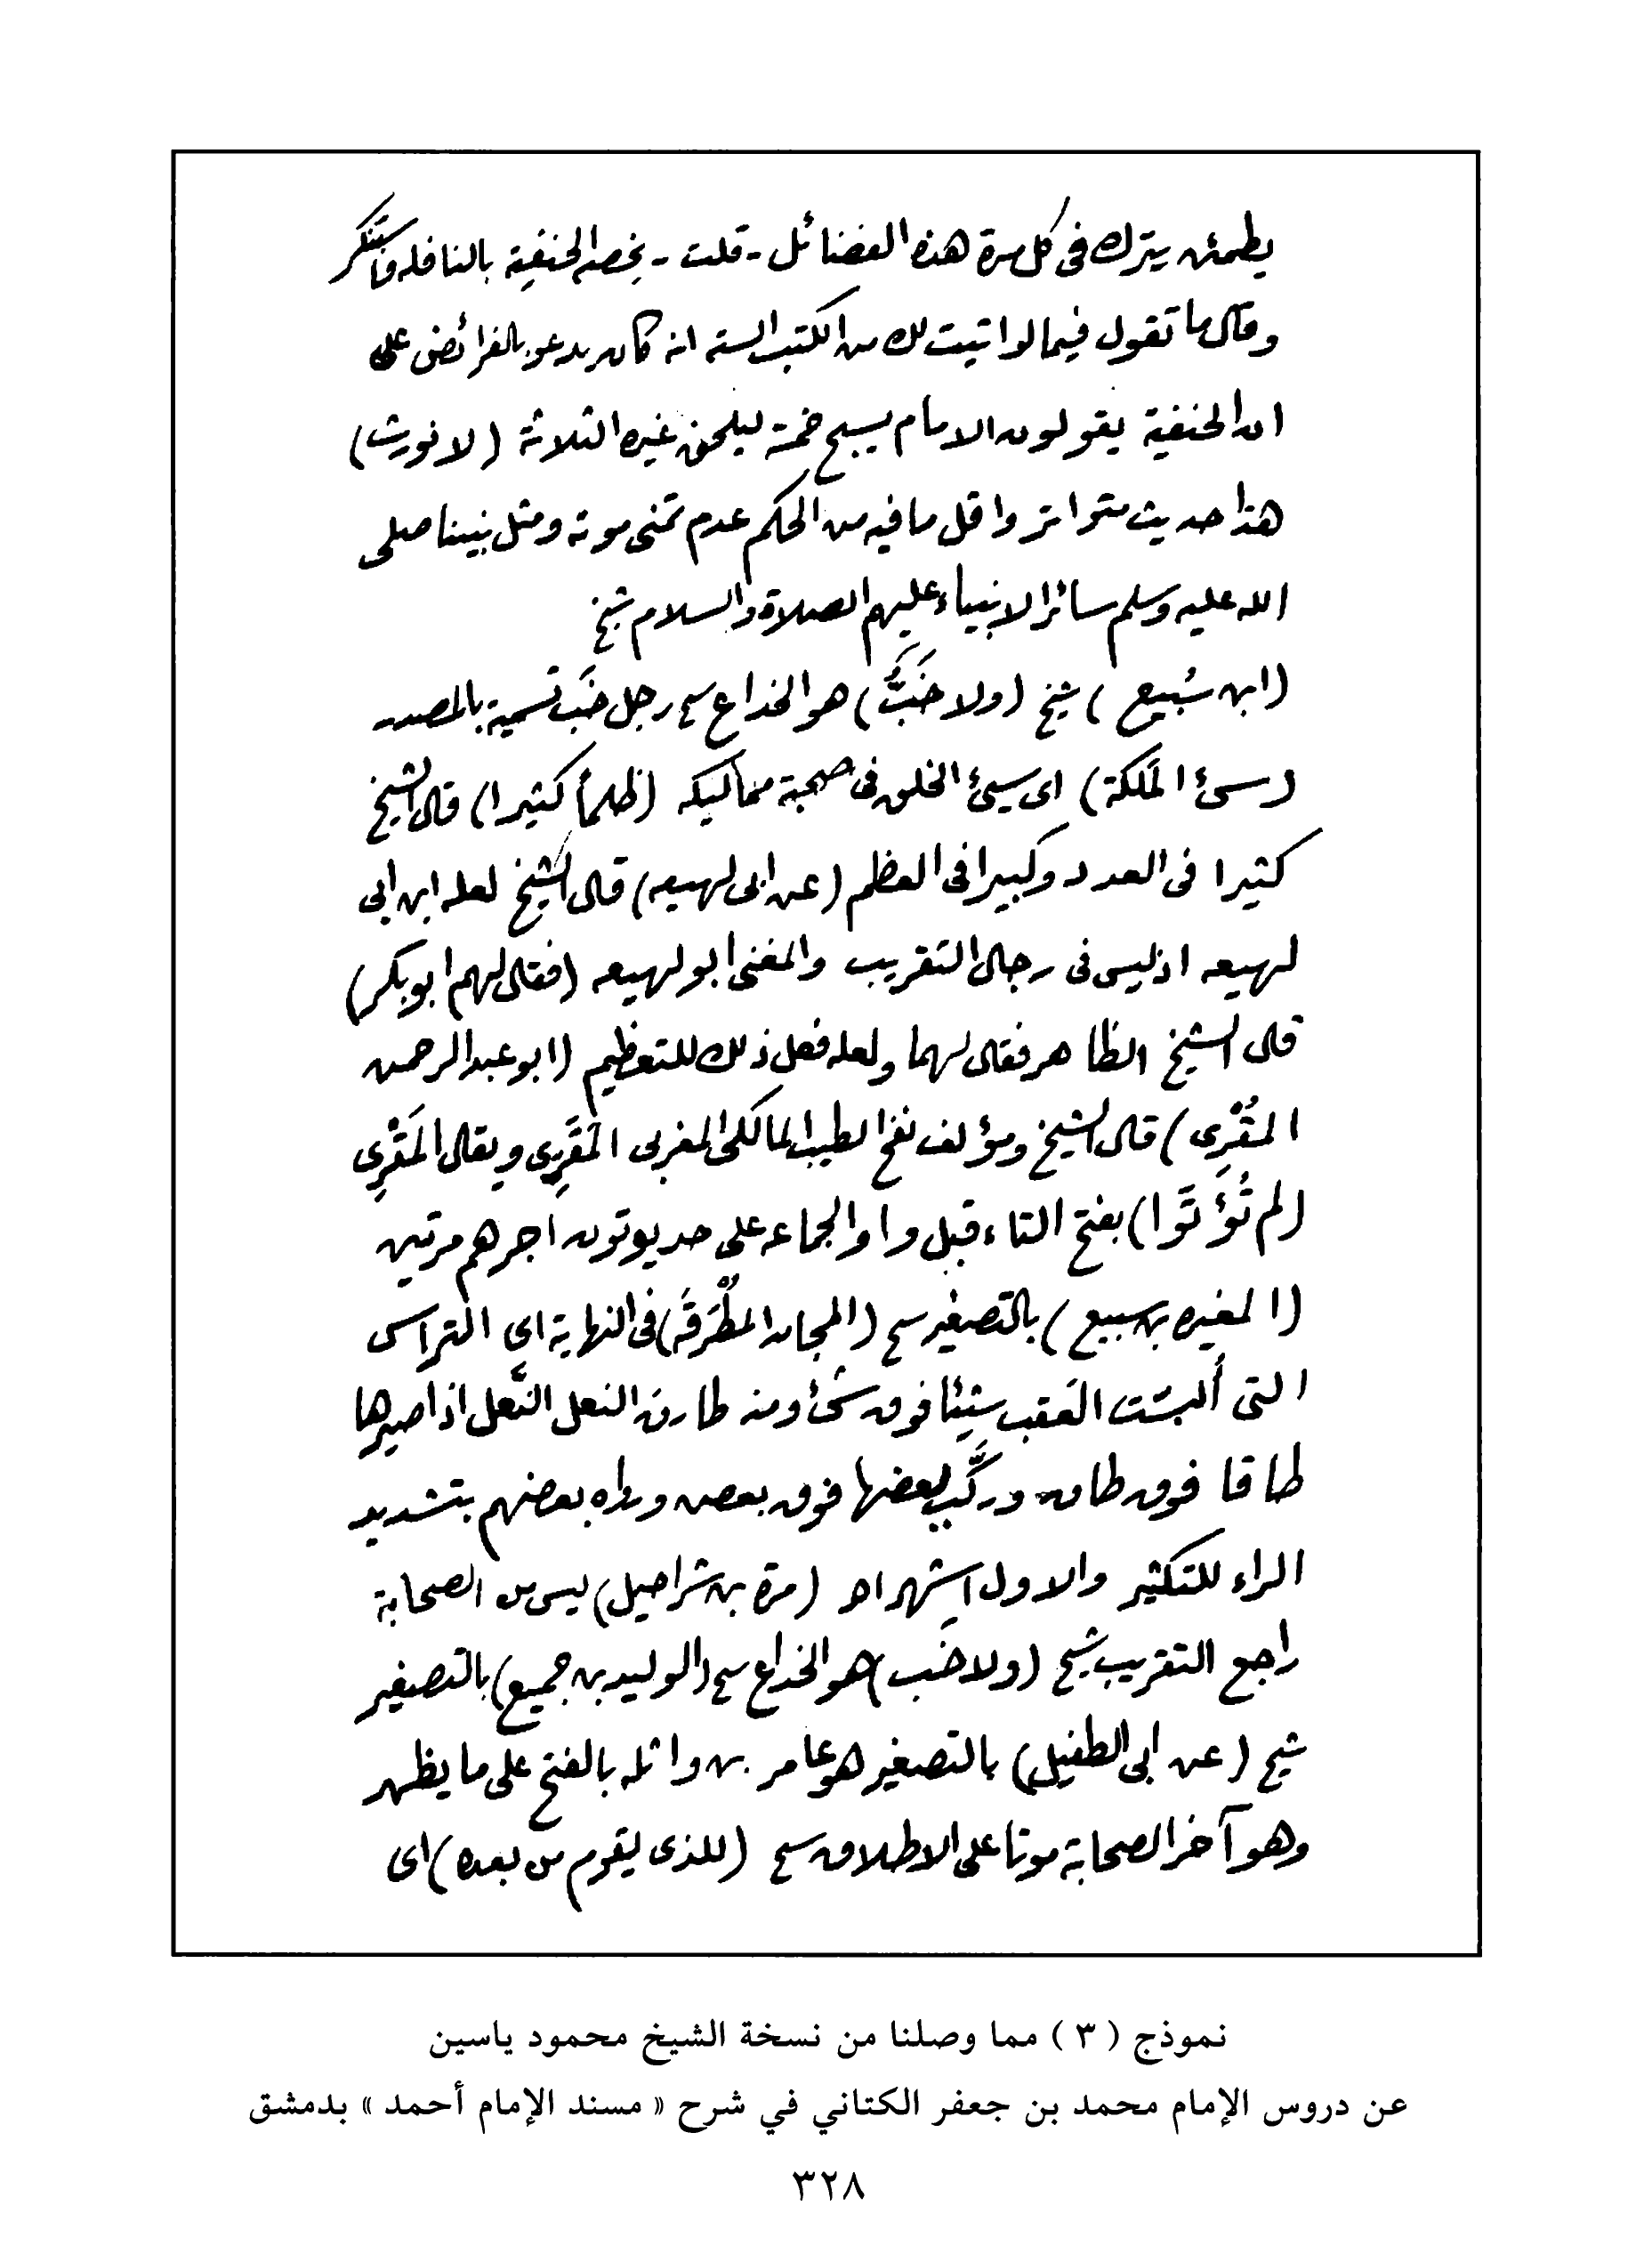 يطمئن يترك في كل مرة هذه الفضائل - قلت - يخصه الحنفية بالنافلة
وقال ما تقول فيما لو اتيت لك من الكتب الستة انه كان يدعو بالفرائض على
ان الحنفية يقولون الامام يسبح خمسة ليلحق غيره الثلاثة (لا نورث)
هذا حديث متواتر واقل ما فيه من الحكم عدم تمنى موته ومثل نبينا صلى
الله عليه وسلم سائر الانبياء عليهم الصلاة والسلام شيخ
(ابن سُبيع) شيخ (ولا خَبٌّ) هو الخداع سح رجل خَب تسمية بالمصدر
(سئ المَلكة) اى سيئ الخلق فى صحبة مماليكه (ظلماً كثيرا) قال الشيخ
كثيرا فى العدد وكبيرا فى العظم (عن ابى لهيعه) قال الشيخ لعله ابن ابى
لهيعه اذ ليس فى رجال التقريب والمغنى ابو لهيعه (فقال لهم ابو بكر)
قال الشيخ الظاهر فقال لهما ولعله فعل ذلك للتعظيم (ابو عبد الرحمن
المُقْرِى) قال الشيخ ومؤلف نفح الطيب المالكى المغربى المَقَّرِى ويقال المَقْرِى
(لم تُؤتَوا) بفتح التاء قبل واو الجماعه على حد يوتون اجرهم مرتين
(المغيره بن سبيع) بالتصغير سح (المجان المُطْرَقَة) فى النهاية اى التراس
التى أُلبسَت العَقب شيئا فوق شئ ومنه طارق النعل النَّعل اذا صيرها
طاقا فوق طاق وركَّب بعضها فوق بعض ورواه بعضهم بتشديد
الراء للتكثير والاول اشهر اه (مرة بن شراحيل) ليس من الصحابة
راجع التقريب شيخ (ولا خَب) هو الخداع سح (الوليد بن جميع) بالتصغير
شيخ (عن ابى الطفيل) بالتصغير هو عامر بن واثله بالفتح على ما يظهر
وهو آخر الصحابة موتا على الاطلاق سح (للذى يقوم من بعده) اى
نموذج ( ٣ ) مما وصلنا من نسخة الشيخ محمود ياسين
عن دروس الإمام محمد بن جعفر الكتاني في شرح « مسند الإمام أحمد » بدمشق
٣٢٨